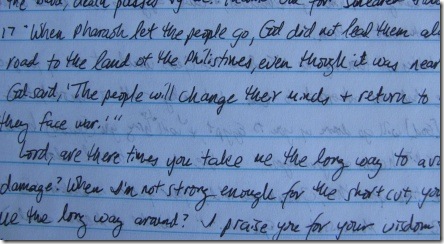 the blood, death passed by me.
17 "When Pharaoh let the people go, God did not lead them al
road to the land of the Philistines, even though it was near
God said, 'The people will change their minds + return to
they face war.'"
Lord, are there times you take me the long way to av
damage? When I'm not strong enough for the short cut, you
me the long way around? I praise you for your wisdom